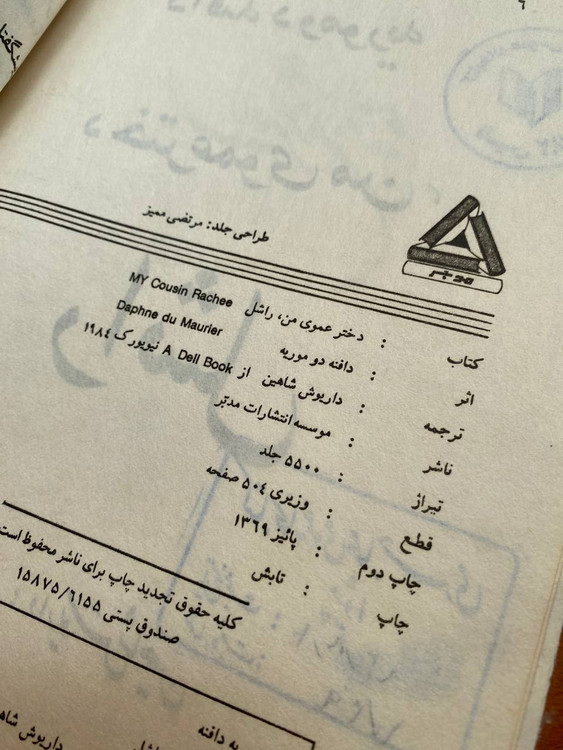 طراحی جلد: مرتضی ممیز
مدبر
کتاب : دختر عموی من، راشل MY Cousin Rachee
اثر : دافنه دو موریه Daphne du Maurier
ترجمه : داریوش شاهین از A Dell Book نیویورک ۱۹۸۴
ناشر : موسسه انتشارات مدبّر
تیراژ : ۵۵۰۰ جلد
قطع : وزیری ۵۰۴ صفحه
چاپ دوم : پائیز ۱۳۶۹
چاپ : تابش
کلیه حقوق تجدید چاپ برای ناشر محفوظ است
صندوق پستی ۱۵۸۷۵/۶۱۵۵
به دافنه
داریوش